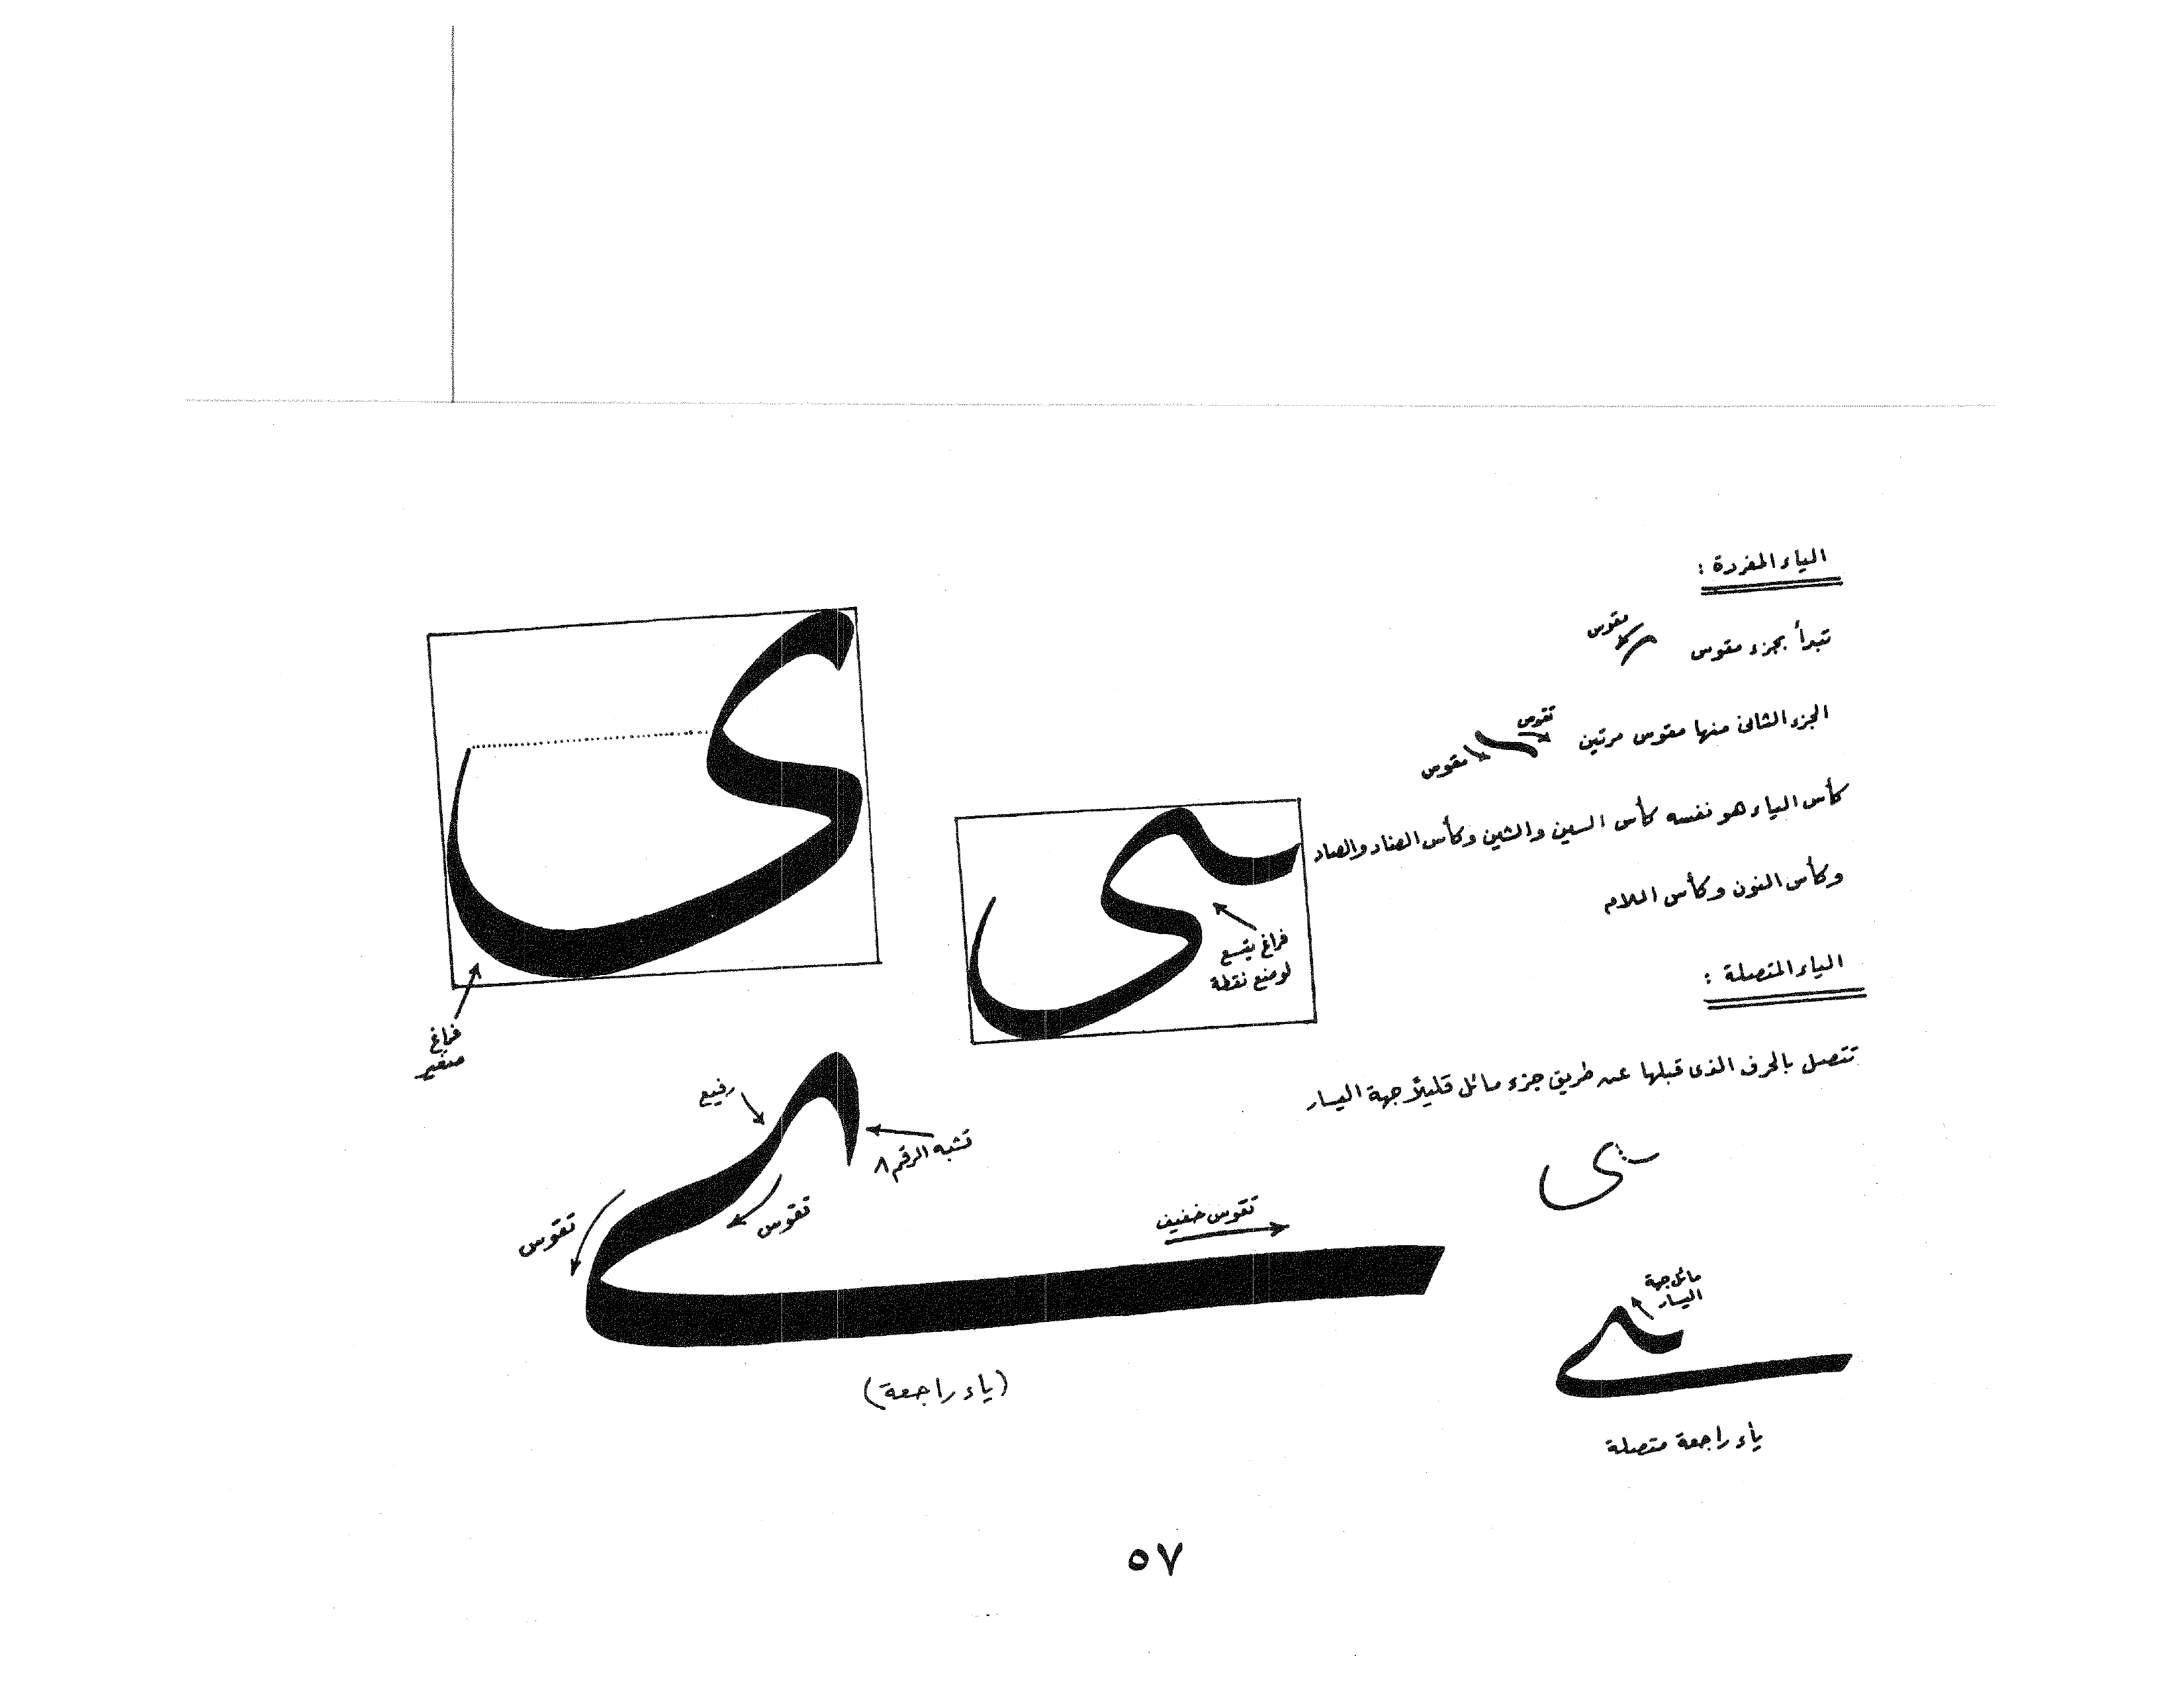 الياء المفردة :
تبدأ بجزء مقوس
مقوس
الجزء الثانى منها مقوس مرتين
تقوس
مقوس
كأس الياء هو نفسه كأس السين والشين وكأس الضاد والصاد
وكأس النون وكأس اللام
الياء المتصلة :
تتصل بالحرف الذى قبلها عن طريق جزء مائل قليلاً جهة اليسار
ى
فراغ
صغير
سى
فراغ يتسع
لوضع نقطة
رفيع
تشبه الرقم ٨
تقوس
تقوس
تقوس خفيف
(ياء راجعة)
مائل جهة
اليسار
ياء راجعة متصلة
٥٧